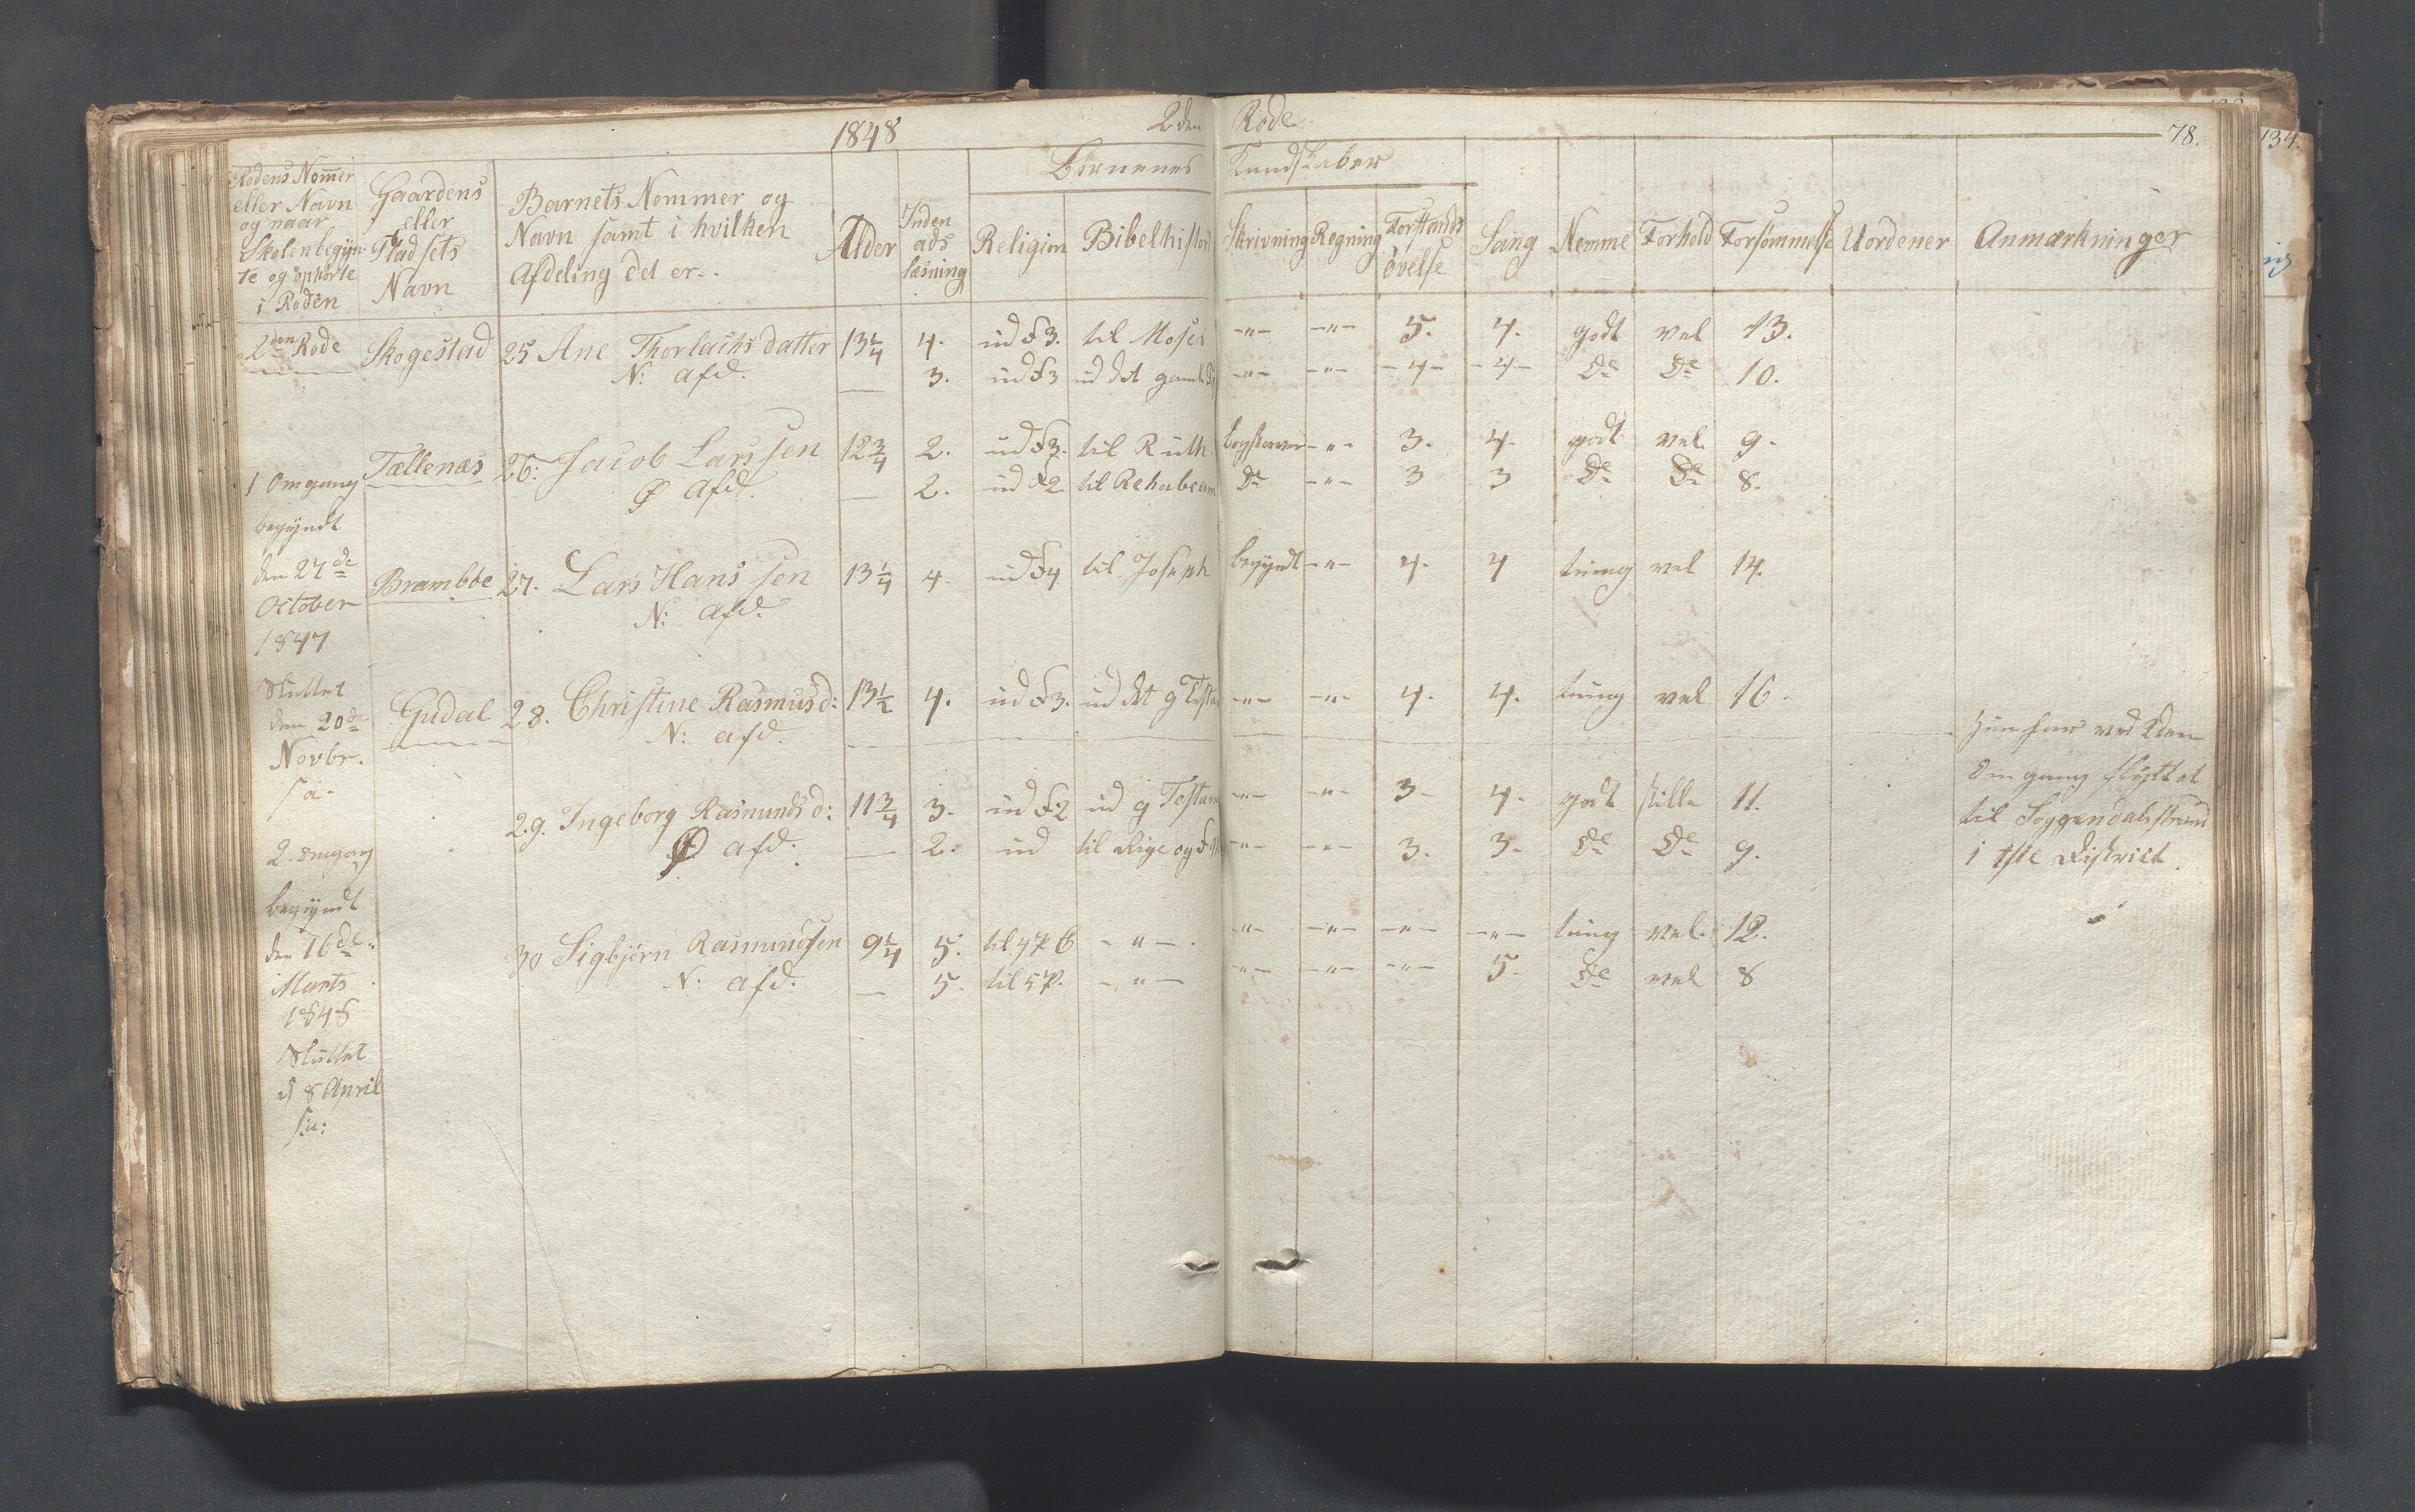 1848 2den Rode 78.
134.
Børnenes Kundskaber
Rodens Nommer eller Navn og naar Skolen begyn- te og ophørte i Roden
Gaardens eller Pladsets Navn
Barnets Nommer og Navn samt i hvilken Afdeling det er.
Alder
Inden ads læsning
Religion
Bibelhistori
Skrivning
Regning
Forstands øvelse
Sang
Nemme
Forhold
Forsømmelse
Uordener
Anmærkninger
2den Rode Skogestad 25 Ane Thorlachs datter 13 1/4 4. ud F 3. til Moses -"- -"- 5. 4. godt vel 13.
N: afd. — 3. ud F 3 ud det gamle -"- -"- -4- -4- Do Do 10.
Tællenæs 26: Jacob Larssen 12 3/4 2. ud F 3. til Ruth bogstaver -"- 3. 4. godt vel 9.
1 Omgang
Ø afd. — 2. ud F 2 til Rehabeam Do -"- 3 3 Do Do 8.
begyndt
den 27de Brambøe 27. Lars Hanssen 13 1/4 4. ud F 4 til Joseph begyndt -"- 4. 4 tung vel 14.
October N: afd.
1847
Sluttet
den 20de Gudal 28. Christine Rasmusd: 13 1/2 4. ud F 3. ud det g Testa -"- -"- 4. 4. tung vel 16.
Novbr. N: afd.
s a.
Hun har ved 2den
Omgang flyttet
29. Ingeborg Rasmunds d: 11 3/4 3. ud F 2 ud g Testam -"- -"- 3- 4. godt stille 11. til Soggendalsstrand
2. omgang Ø afd. — 2. ud til Rige og -"- -"- 3. 3. Do Do 9. i 1ste District.
begyndt
den 16de 30 Sigbjørn Rasmundsen 9 1/4 5. til 4 P -"- -"- -"- -"- -"- tung vel. 12.
Marts N: afd. — 5. til 5 P. -"- -"- -"- -"- 5. Do vel 8
1848
Sluttet
d 8 April
s.a: